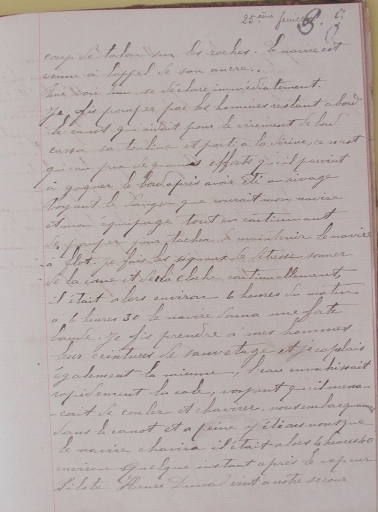 25ème feuillet
coup de talon sur les roches. Le navire est
venu à l'appel de son ancre..
une voie d'eau se déclare immédiatement.
Je fis pomper par les hommes restant à bord
le canot qui aidait pour le virement de bord
cassa sa touline et partit à la dérive, ce n'est
qu'au prix de grands efforts qu'il parvint
à gagner le bord après avoir été au rivage
Voyant le danger que courait mon navire
et mon équipage tout en continuant
de pomper pour tacher de maintenir le navire
à flot. Je fais les signaux de détresse sonner
de la corne et de la cloche continuellement,
il était alors environ 6 heures du matin
a 6 heures 30 le navire donna une forte
bande. Je fis prendre à mes hommes
leurs ceintures de sauvetage et je capelais
également la mienne, l'eau envahissait
rapidement la cale, voyant qu'il mena-
çait de couler et chavirer, nous embarquâmes
dans le canot et a peine y étions nous que
le navire chavira il était alors 6 heures 40
environ quelque instant après le vapeur
Pilote Henri vint a notre secour